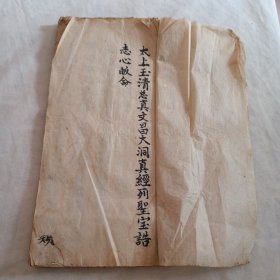 太上玉清总真文昌大洞真經列聖宝誥
志心皈命